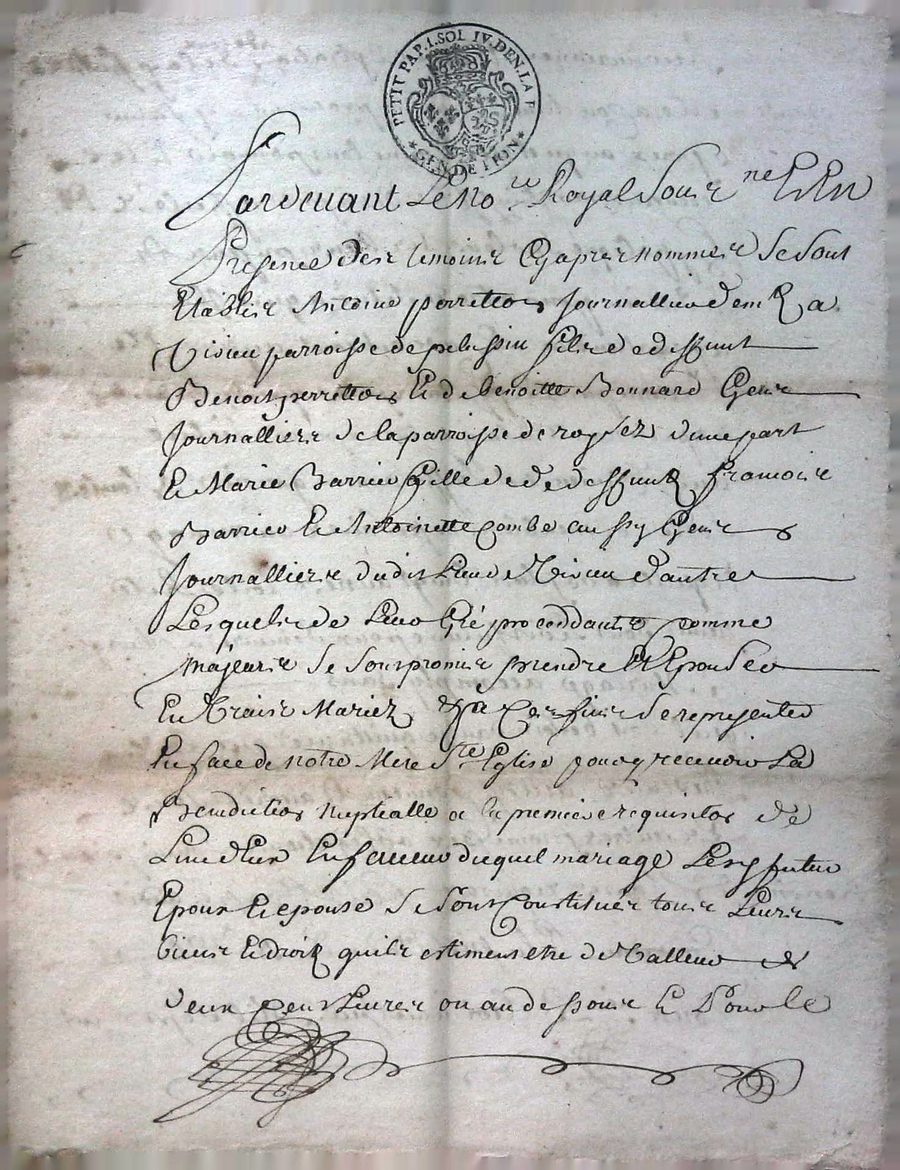 PETIT PAP. 1. SOL IV. DEN. LA F.
GEN. DE LION
Pardevant Le No.re Royal Sous.né Et En
Presence des temoins Cy apres nommes Se Sont
Etablis Antoine perretton Journallier dem.t a
Viven parroisse de pelussin fils de deffunt
Benoit perretton Et de benoitte Bonnard Gens
Journalliers de la parroisse de d'une part
Et Marie Barriou fille de deffunts francois
Barriou Et Antoinette Combe aussy Gens
Journalliers dudit Lieu de Viven d'autre
Lesquels de Leur Gré proceddants comme
majeurs Se Sont promis prendre Et Epouser
En vrais Mariez Et a Ces fins Se representer
En face de notre Mere Ste Eglise pour y recevoir La
Benediction nuptialle a la premiere requisition de
L'un d'Eux En faveur duquel mariage Lesd futur
Epoux Et epouse Se Sont Constitués tous Leurs
biens Et droits quils estiment etre de Valleur de
deux Cens Livres ou au dessous Et Pour le